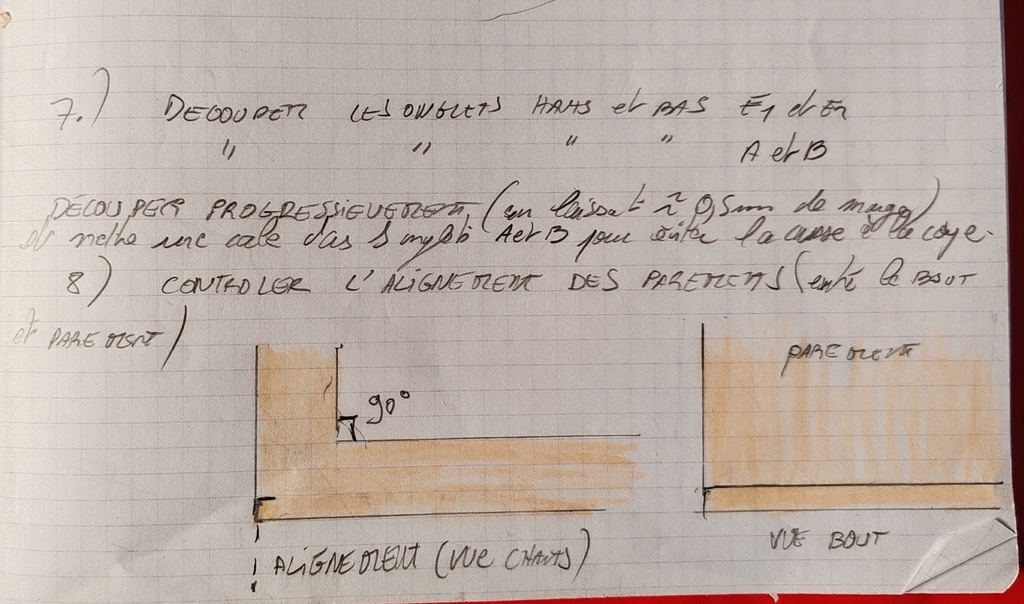 7.) DECOUPER LES ONGLETS HAUTS et BAS E1 et E2
" " " " A et B
DÉCOUPER PROGRESSIVEMENT (en laissant ≈ 0,5mm de marge)
et mettre une cale A et B pour éviter la casse
8) CONTROLER L'ALIGNEMENT DES PAREMENTS (entre le BOUT
et PAREMENT)
PAREMENT
90°
VUE BOUT
ALIGNEMENT (VUE CHANTS)